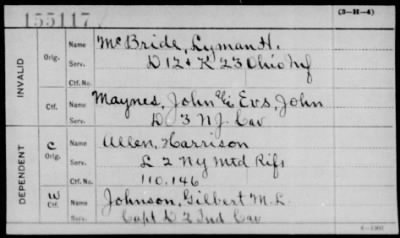 155117
(3-H-4)
INVALID
Orig.
Name McBride, Lyman H.
Serv. D 12 & K 23 Ohio Inf
Ctf. No.
Ctf.
Name Maynes, John Evs, John
Serv. D 3 N.J. Cav
DEPENDENT
C
Orig.
Name Allen, Harrison
Serv. L 2 Ny Mtd Rifs
Ctf. No. 110,146
W
Ctf.
Name Johnson, Gilbert M. L.
Serv. Capt D 2 Ind Cav